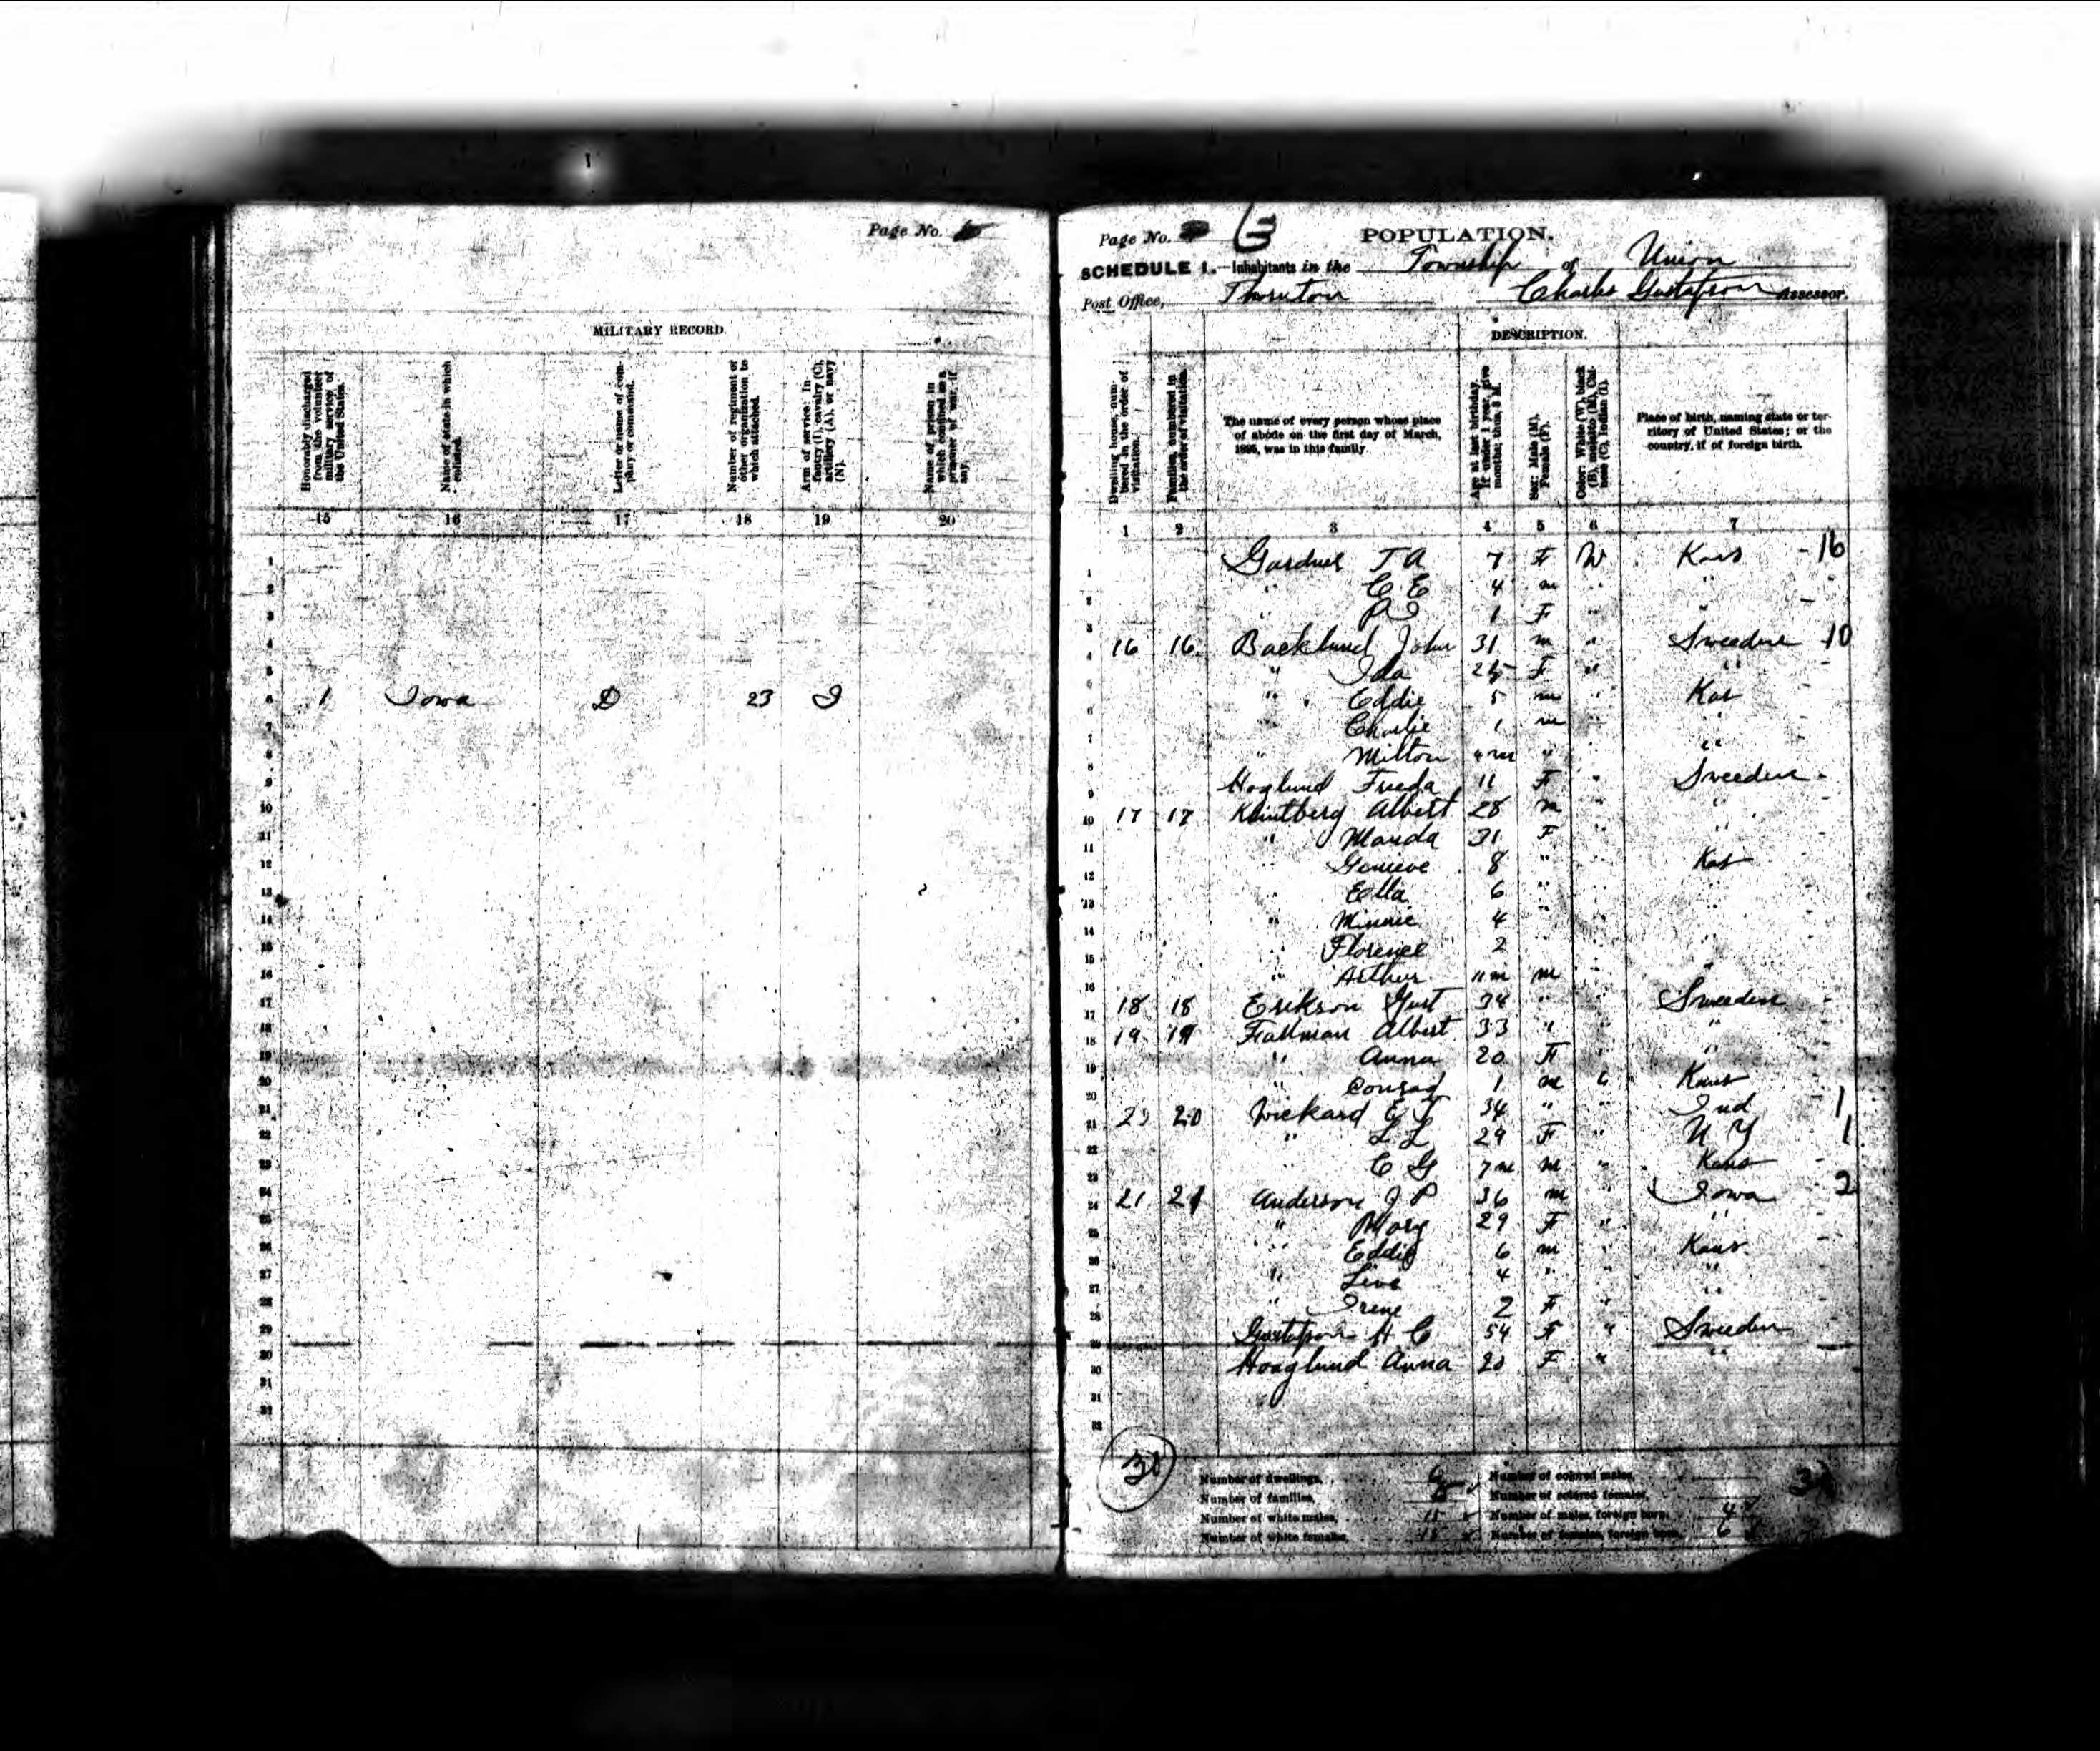 Page No.
MILITARY RECORD.
Honorably discharged from the volunteer military service of the United States.
Name of state in which enlisted.
Letter or name of company or command.
Number of regiment or other organization to which attached.
Arm of service: Infantry (I), cavalry (C), artillery (A), or navy (N).
Name of prison in which confined as a prisoner of war, if any.
15 16 17 18 19 20
1
2
3
4
5
6 1 Iowa D 23 I
7
8
9
10
11
12
13
14
15
16
17
18
19
20
21
22
23
24
25
26
27
28
29
30
31
32
Page No. POPULATION.
SCHEDULE 1.—Inhabitants in the Township of Union
Post Office, Thornton Charles Gustafson Assessor.
DESCRIPTION.
Dwelling house, numbered in the order of visitation.
Families, numbered in the order of visitation.
The name of every person whose place of abode on the first day of March, 1895, was in this family.
Age at last birthday. If under 1 year, give months; thus, 3 M.
Sex: Male (M), Female (F).
Color: White (W), black (B), mulatto (M), Chinese (C), Indian (I).
Place of birth, naming state or territory of United States; or the country, if of foreign birth.
1 2 3 4 5 6 7
1 Gardner T A 7 F W Kans - 16
2 " C E 4 m " "
3 " 1 F " "
4 16 16 Backlund John 31 m " Sweeden 10
5 " Ida F " "
6 " Eddie 5 m " Kas
7 " Charlie 1 m " "
8 " Milton m " " "
9 Hoglund Freda 11 F " Sweeden
10 17 17 Klintberg Albert 28 m " "
11 " Manda 31 F " "
12 " Genieve 8 " " Kas
13 " Ella 6 " " "
14 " Minnie 4 " " "
15 " Florence 2 " " "
16 " Arthur 11 m m " "
17 18 18 Erikson Gust 34 " " Sweeden
18 19 19 Fallman Albert 33 " " "
19 " Anna 20 F " "
20 " Conrad 1 m " Kans
21 20 20 Wickard E T 34 " " Ind 1
22 " L L 29 F " N Y 1
23 " C G 7 m m " Kans
24 21 21 Anderson J P 36 m " Iowa 2
25 " Mary 29 F " "
26 " Eddie 6 m " Kans
27 " Levi 4 " " "
28 " Irene 2 F " "
29 Gustafson H C 54 F " Sweeden
30 Hoaglund Anna 20 F " "
31
32
30
Number of dwellings, 6
Number of families,
Number of white males, 15
Number of white females, 15
Number of colored males,
Number of colored females,
Number of males, foreign born, 4
Number of females, foreign born, 6